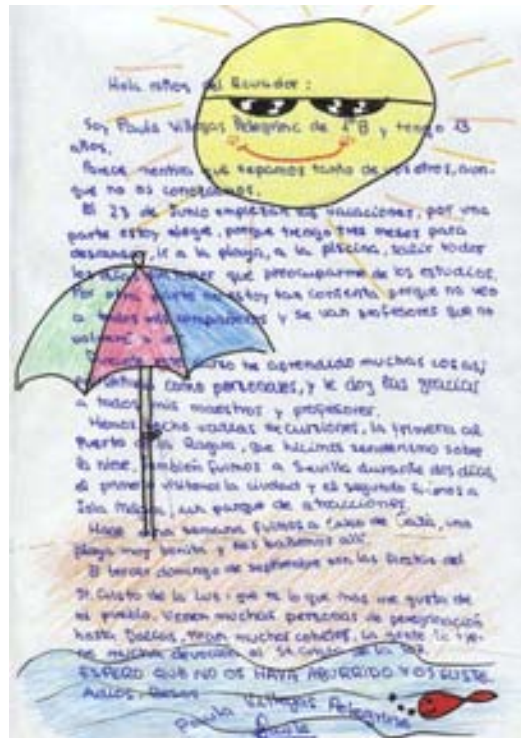 Hola niños del Ecuador:
Soy Paula Villegas Pelegrina de 1ºB y tengo 13
años.
Parece mentira que sepamos tanto de vosotros, aun-
que no os conozcamos.
El 23 de Junio empiezan las vacaciones, por una
parte estoy alegre, porque tengo tres meses para
descansar, ir a la playa, a la piscina, salir todos
los días sin tener que preocuparme de los estudios.
Por otra parte no estoy tan contenta porque no veo
a todos mis compañeros y se van profesores que no
volveré a ver.
Durante este curso he aprendido muchas cosas,
como personales, y le doy las gracias
a todos mis maestros y profesores.
Hemos hecho varias excursiones, la primera al
Puerto de la Ragua, que hicimos senderismo sobre
la nieve, también fuimos a Sevilla durante dos días,
el primero visitamos la ciudad y el segundo fuimos a
Isla Mágica, un parque de atracciones.
Hace una semana fuimos a Cabo de Gata, una
playa muy bonita y nos bañamos allí.
El tercer domingo de septiembre son las fiestas del
St. Cristo de la Luz, que es lo que más me gusta de
mi pueblo, vienen muchas personas de peregrinación
hasta Dalías, tiran muchos cohetes, la gente le tie-
ne mucha devoción al St. Cristo de la Luz.
ESPERO QUE NO OS HAYA ABURRIDO Y OS GUSTE.
ADIOS, Besos
Paula Villegas Pelegrina
Paula